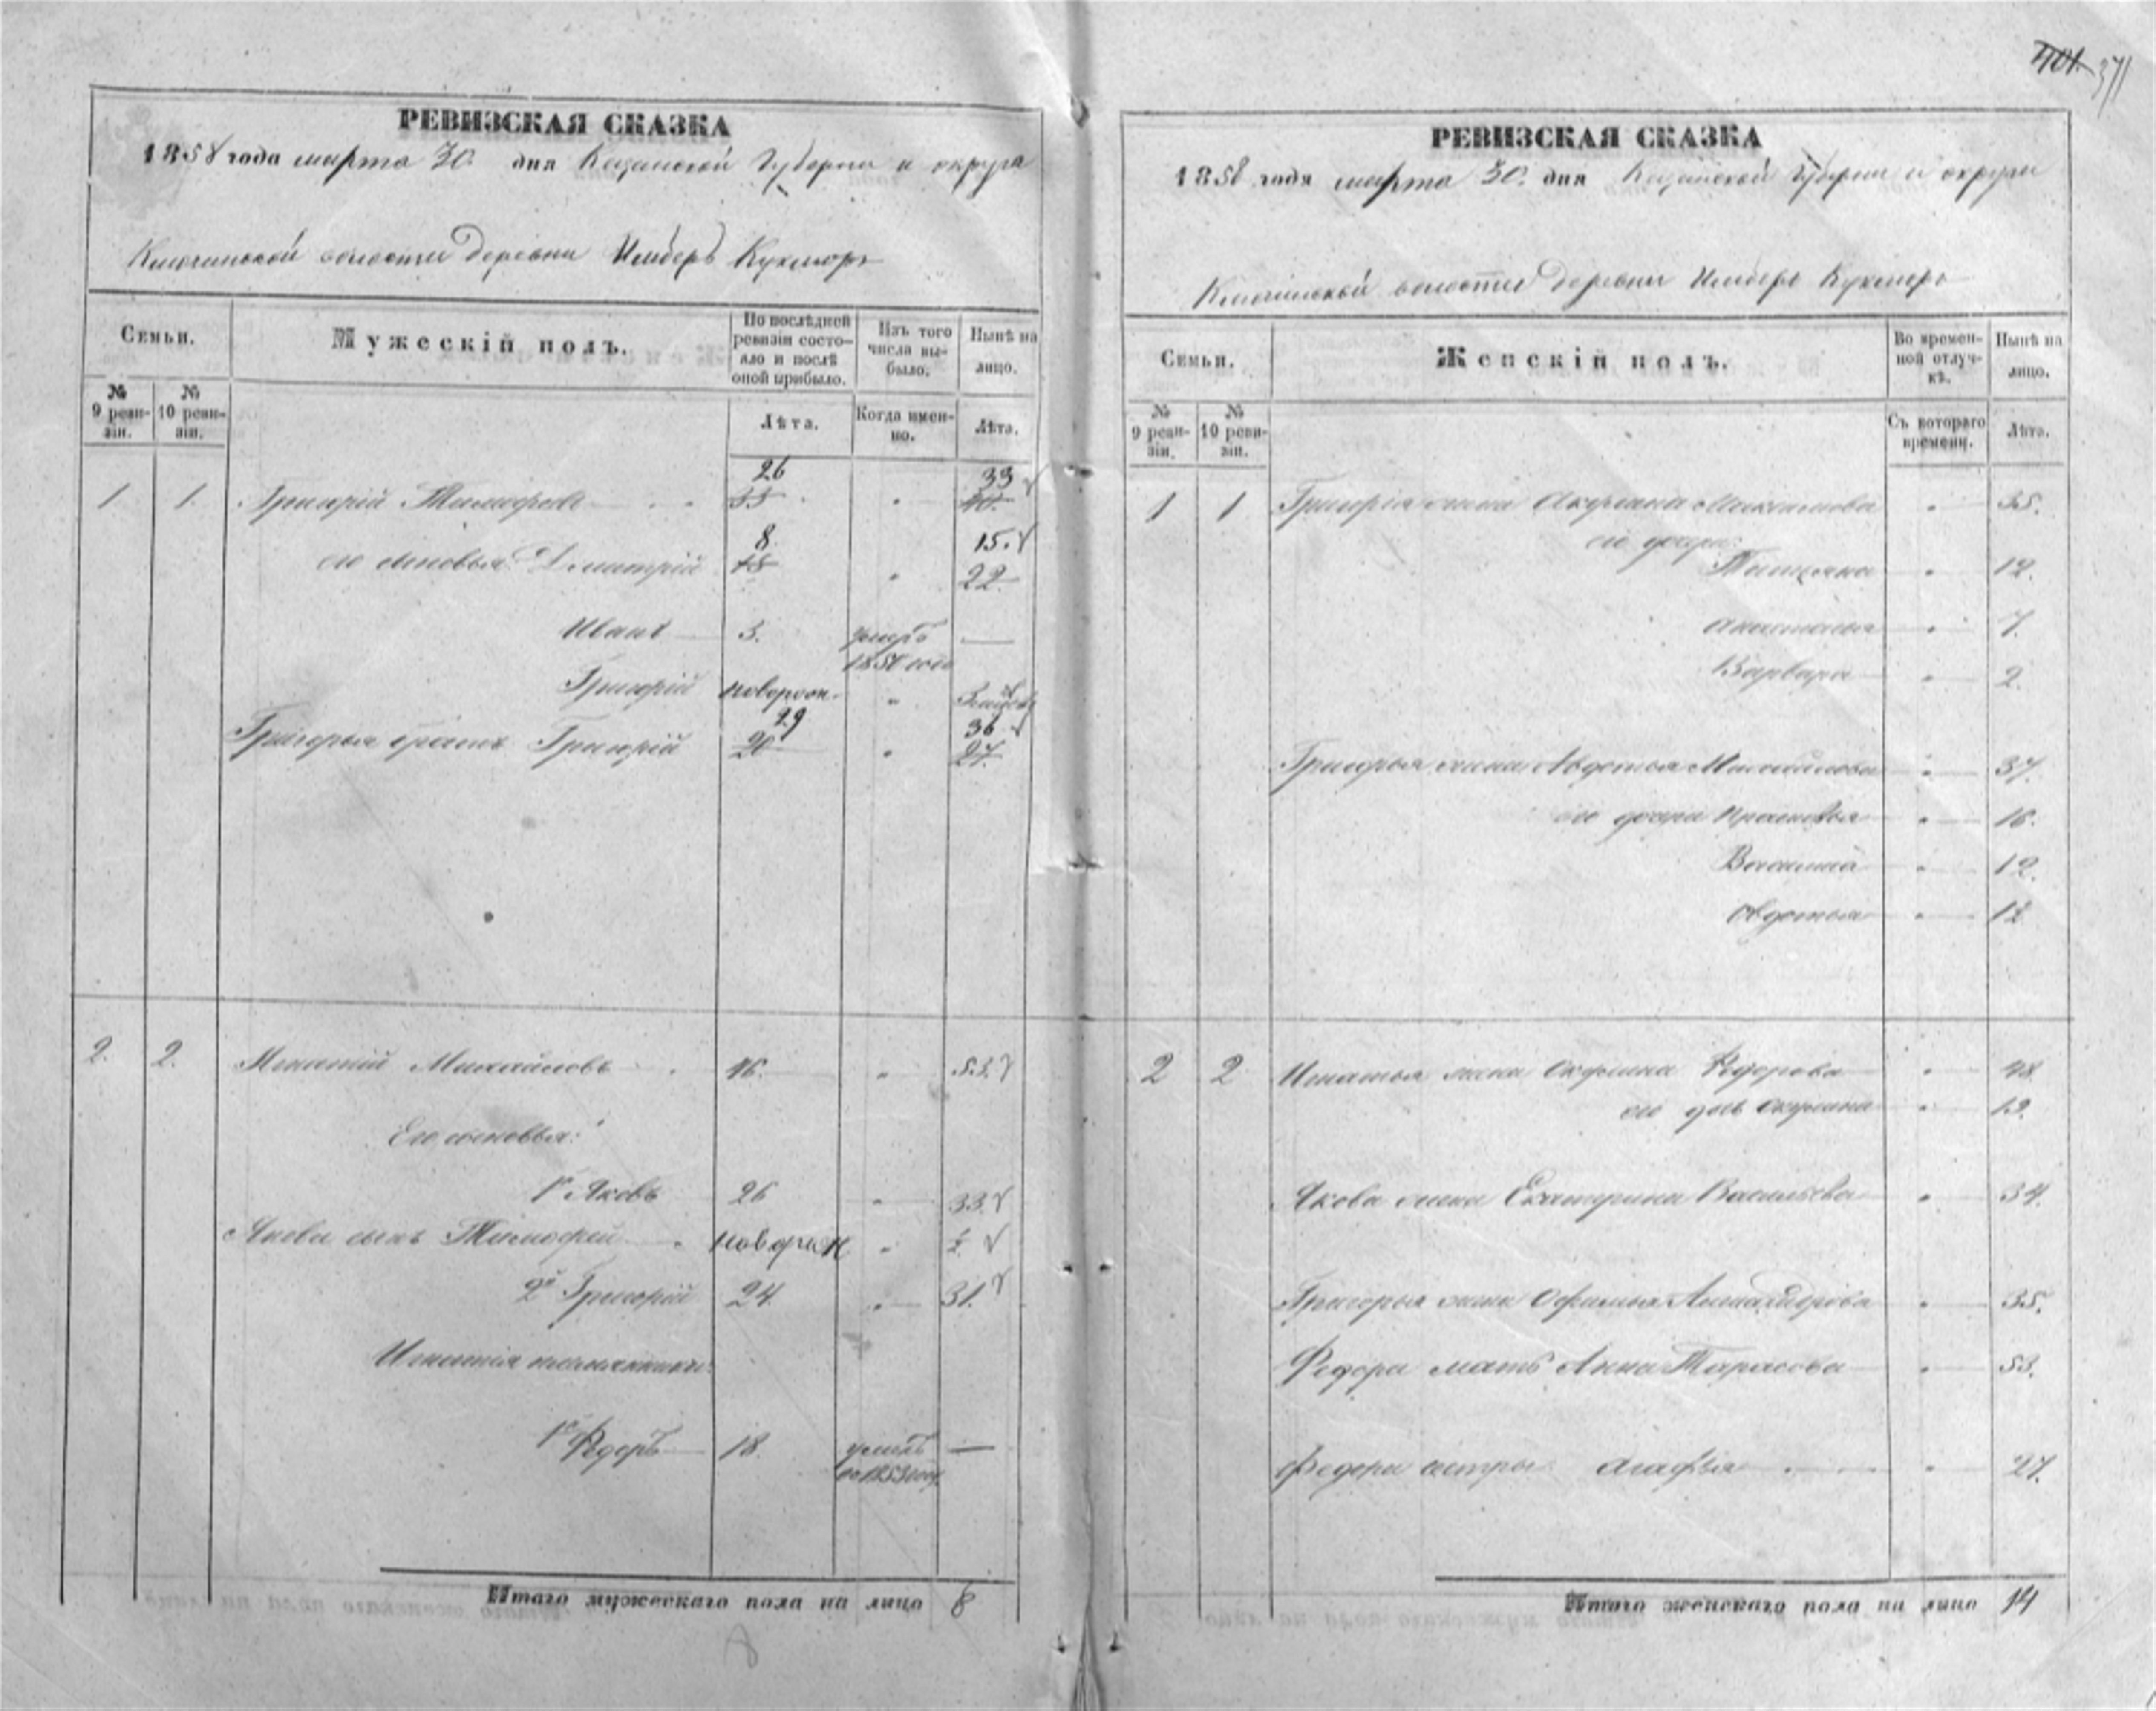 401. 371
РЕВИЗСКАЯ СКАЗКА
1858 года марта 30. дня Казанской Губерніи и округа
волости деревни Кукморъ
Семьи.
Мужескій полъ.
По послѣдней ревизіи состояло и послѣ оной прибыло.
Изъ того числа выбыло.
Нынѣ на лицо.
№ 9 ревизіи.
№ 10 ревизіи.
Лѣта.
Когда именно.
Лѣта.
26 33
1 1. Григорій Тимофеевъ 33 40.
8. 15.
его сыновья Дмитрій 15 22
Иванъ 3. умеръ —
года
Григорій новорож.
29 36
Григорья братъ Григорій 20 27.
2. 2. Игнатій Михайловъ 46. 53.
Его сыновья:
1й Яковъ 26 33.
Якова сынъ Тимофей новорож
2й Григорій 24. 31.
Игнатія племянники:
1й Федоръ 18. умеръ —
въ 1853 году
Итаго мужескаго пола на лицо 8
8
РЕВИЗСКАЯ СКАЗКА
1858 года марта 30. дня Казанской Губерніи и округи
волости деревни Кукморъ
Семьи.
Женскій полъ.
Во временной отлучкѣ.
Нынѣ на лицо.
№ 9 ревизіи.
№ 10 ревизіи.
Съ котораго времени.
Лѣта.
1 1 Григорія жена Максимова 35.
его дочери:
Татьяна 12.
Анастасья 7.
Варвара 2.
Григорья жена Авдотья Михайлова 37.
его дочери Прасковья 16.
12.
Овдотья 12
2 2 Игнатья жена Федорова 48
его дочь 12.
Якова жена Екатерина Васильева 34.
Григорья жена Офимья 35.
Федора мать Анна Тарасова 53.
Федора сестры Агафья 27.
Итаго женскаго пола на лицо 14